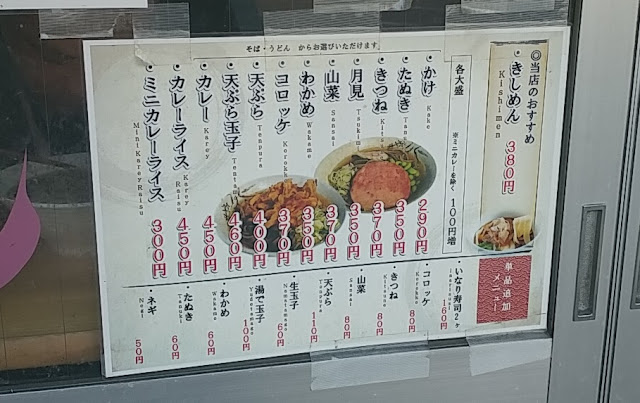 そば・うどん からお選びいただけます。
◎当店のおすすめ
きしめん 380円
Kishimen
各大盛 ※ミニカレーを除く 100円増
かけ 290円
Kake
たぬき 350円
きつね 370円
月見 350円
山菜 370円
Sansai
わかめ 350円
Wakame
コロッケ 370円
天ぷら 400円
Tenpura
天ぷら玉子 460円
カレー 450円
Karey
カレーライス 450円
Karey Raisu
ミニカレーライス 300円
Mini Karey Raisu
単品追加メニュー
いなり寿司2ヶ 160円
コロッケ 80円
きつね 80円
山菜 80円
天ぷら 110円
生玉子 60円
湯で玉子 100円
わかめ 60円
Wakame
たぬき 60円
Tanuki
ネギ 50円
Negi